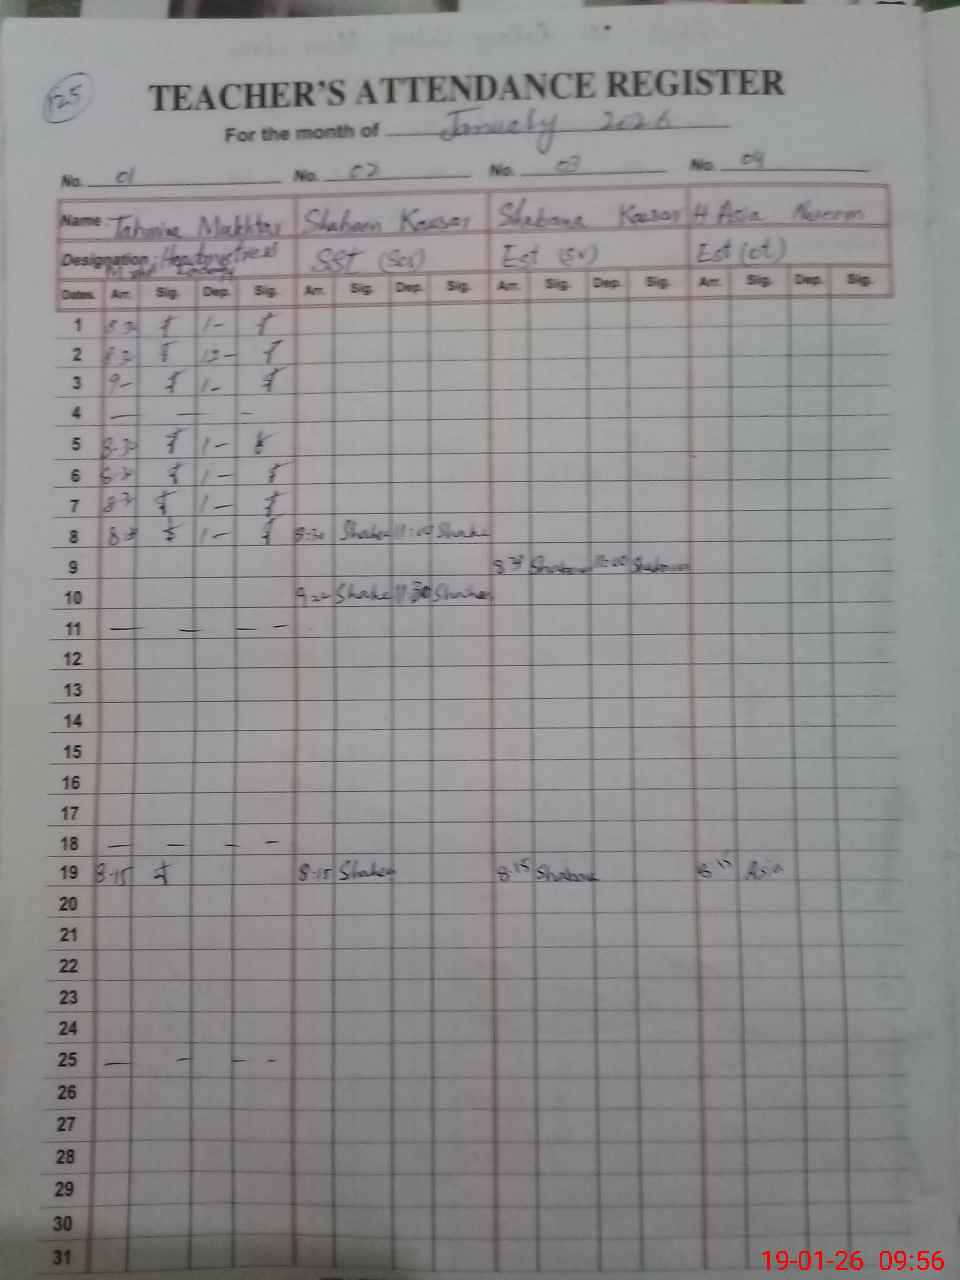 125
TEACHER'S ATTENDANCE REGISTER
For the month of January 2026
No. 01 No. 02 No. 03 No. 04
Name: Tahmina Mukhtar Shaheen Kausar Shabana Kausar H Asia
Designation: Headmistress SST (Sci) Est (sv) Est (ot)
Dates. Arr. Sig. Dep. Sig. Arr. Sig. Dep. Sig. Arr. Sig. Dep. Sig. Arr. Sig. Dep. Sig.
1 1-
2 12-
3 9- 1-
4 — — -
5 8-30 1-
6 8-30 1-
7 8-30 1-
8 8-30 1- 8:30 Shaheen 11:00 Shaheen
9 8:30 Shabana 11:00 Shabana
10 Shaheen 11:30 Shaheen
11 — — — —
12
13
14
15
16
17
18 — — - -
19 8-15 8:15 Shaheen 8:15 Shabana 8:15 Asia
20
21
22
23
24
25 — - - -
26
27
28
29
30
31
19-01-26 09:56